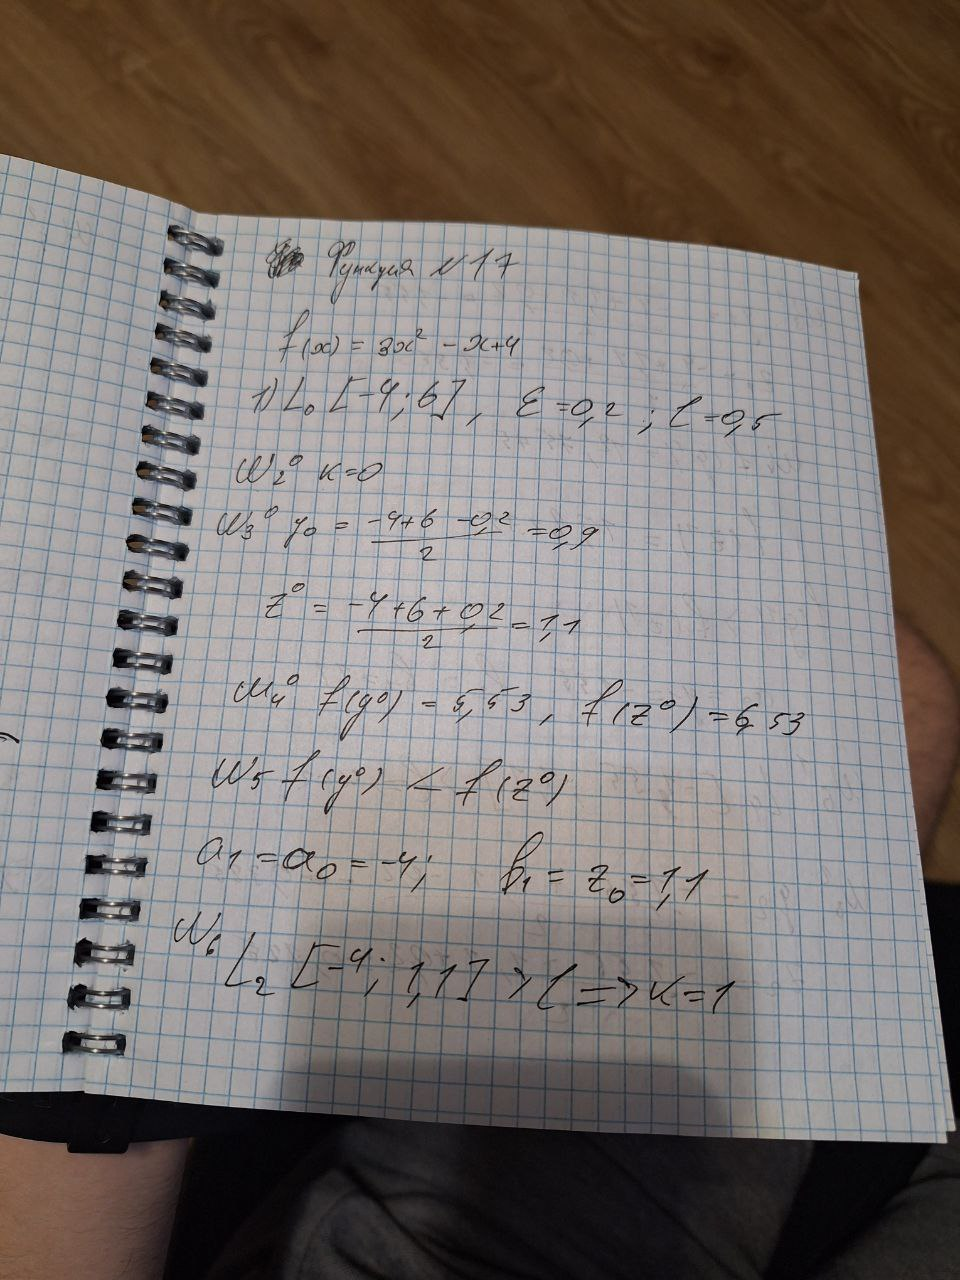 Функция №17
f(x) = 3x² - x+4
1) L₀ [-4; 6], ε=0,2; l=0,5
№2⁰ к=0
№3⁰ y₀ = (-4+6-0,2)/2 = 0,9
z⁰ = (-4+6+0,2)/2 = 1,1
№4⁰ f(y⁰) = 5,53, f(z⁰) = 6,53
№5 f(y⁰) < f(z⁰)
a₁ = a₀ = -4; b₁ = z₀ = 1,1
№6 L₂ [-4; 1,1] > l => к=1